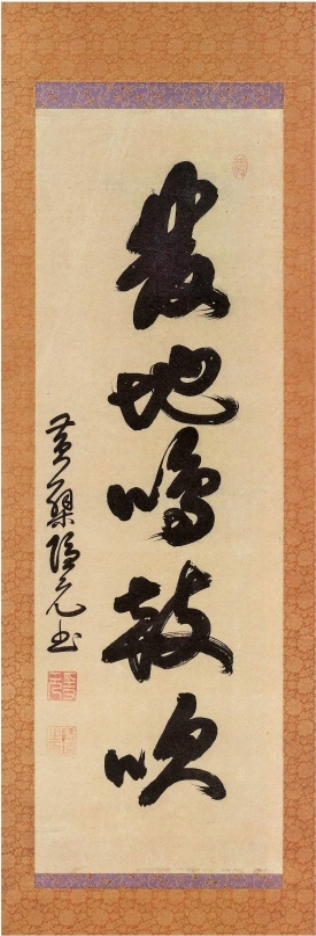 發地鳴鼓吹
黃檗隱元書